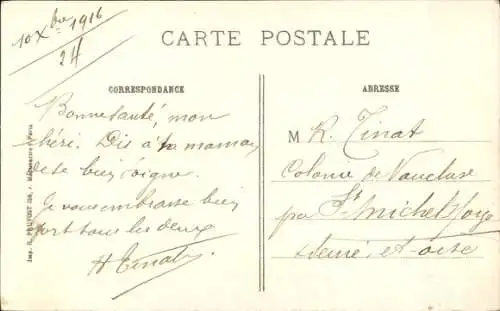 10 Xbre 1916
24
CARTE POSTALE
CORRESPONDANCE
ADRESSE
Bonne santé, mon
chéri. Dis à ta maman
de se bien soigne.
Je vous embrasse bien
fort tous les deux
H Tinat
M R. Tinat
Colonie de Vaucluse
par St Michel s/orge
Seine et oise